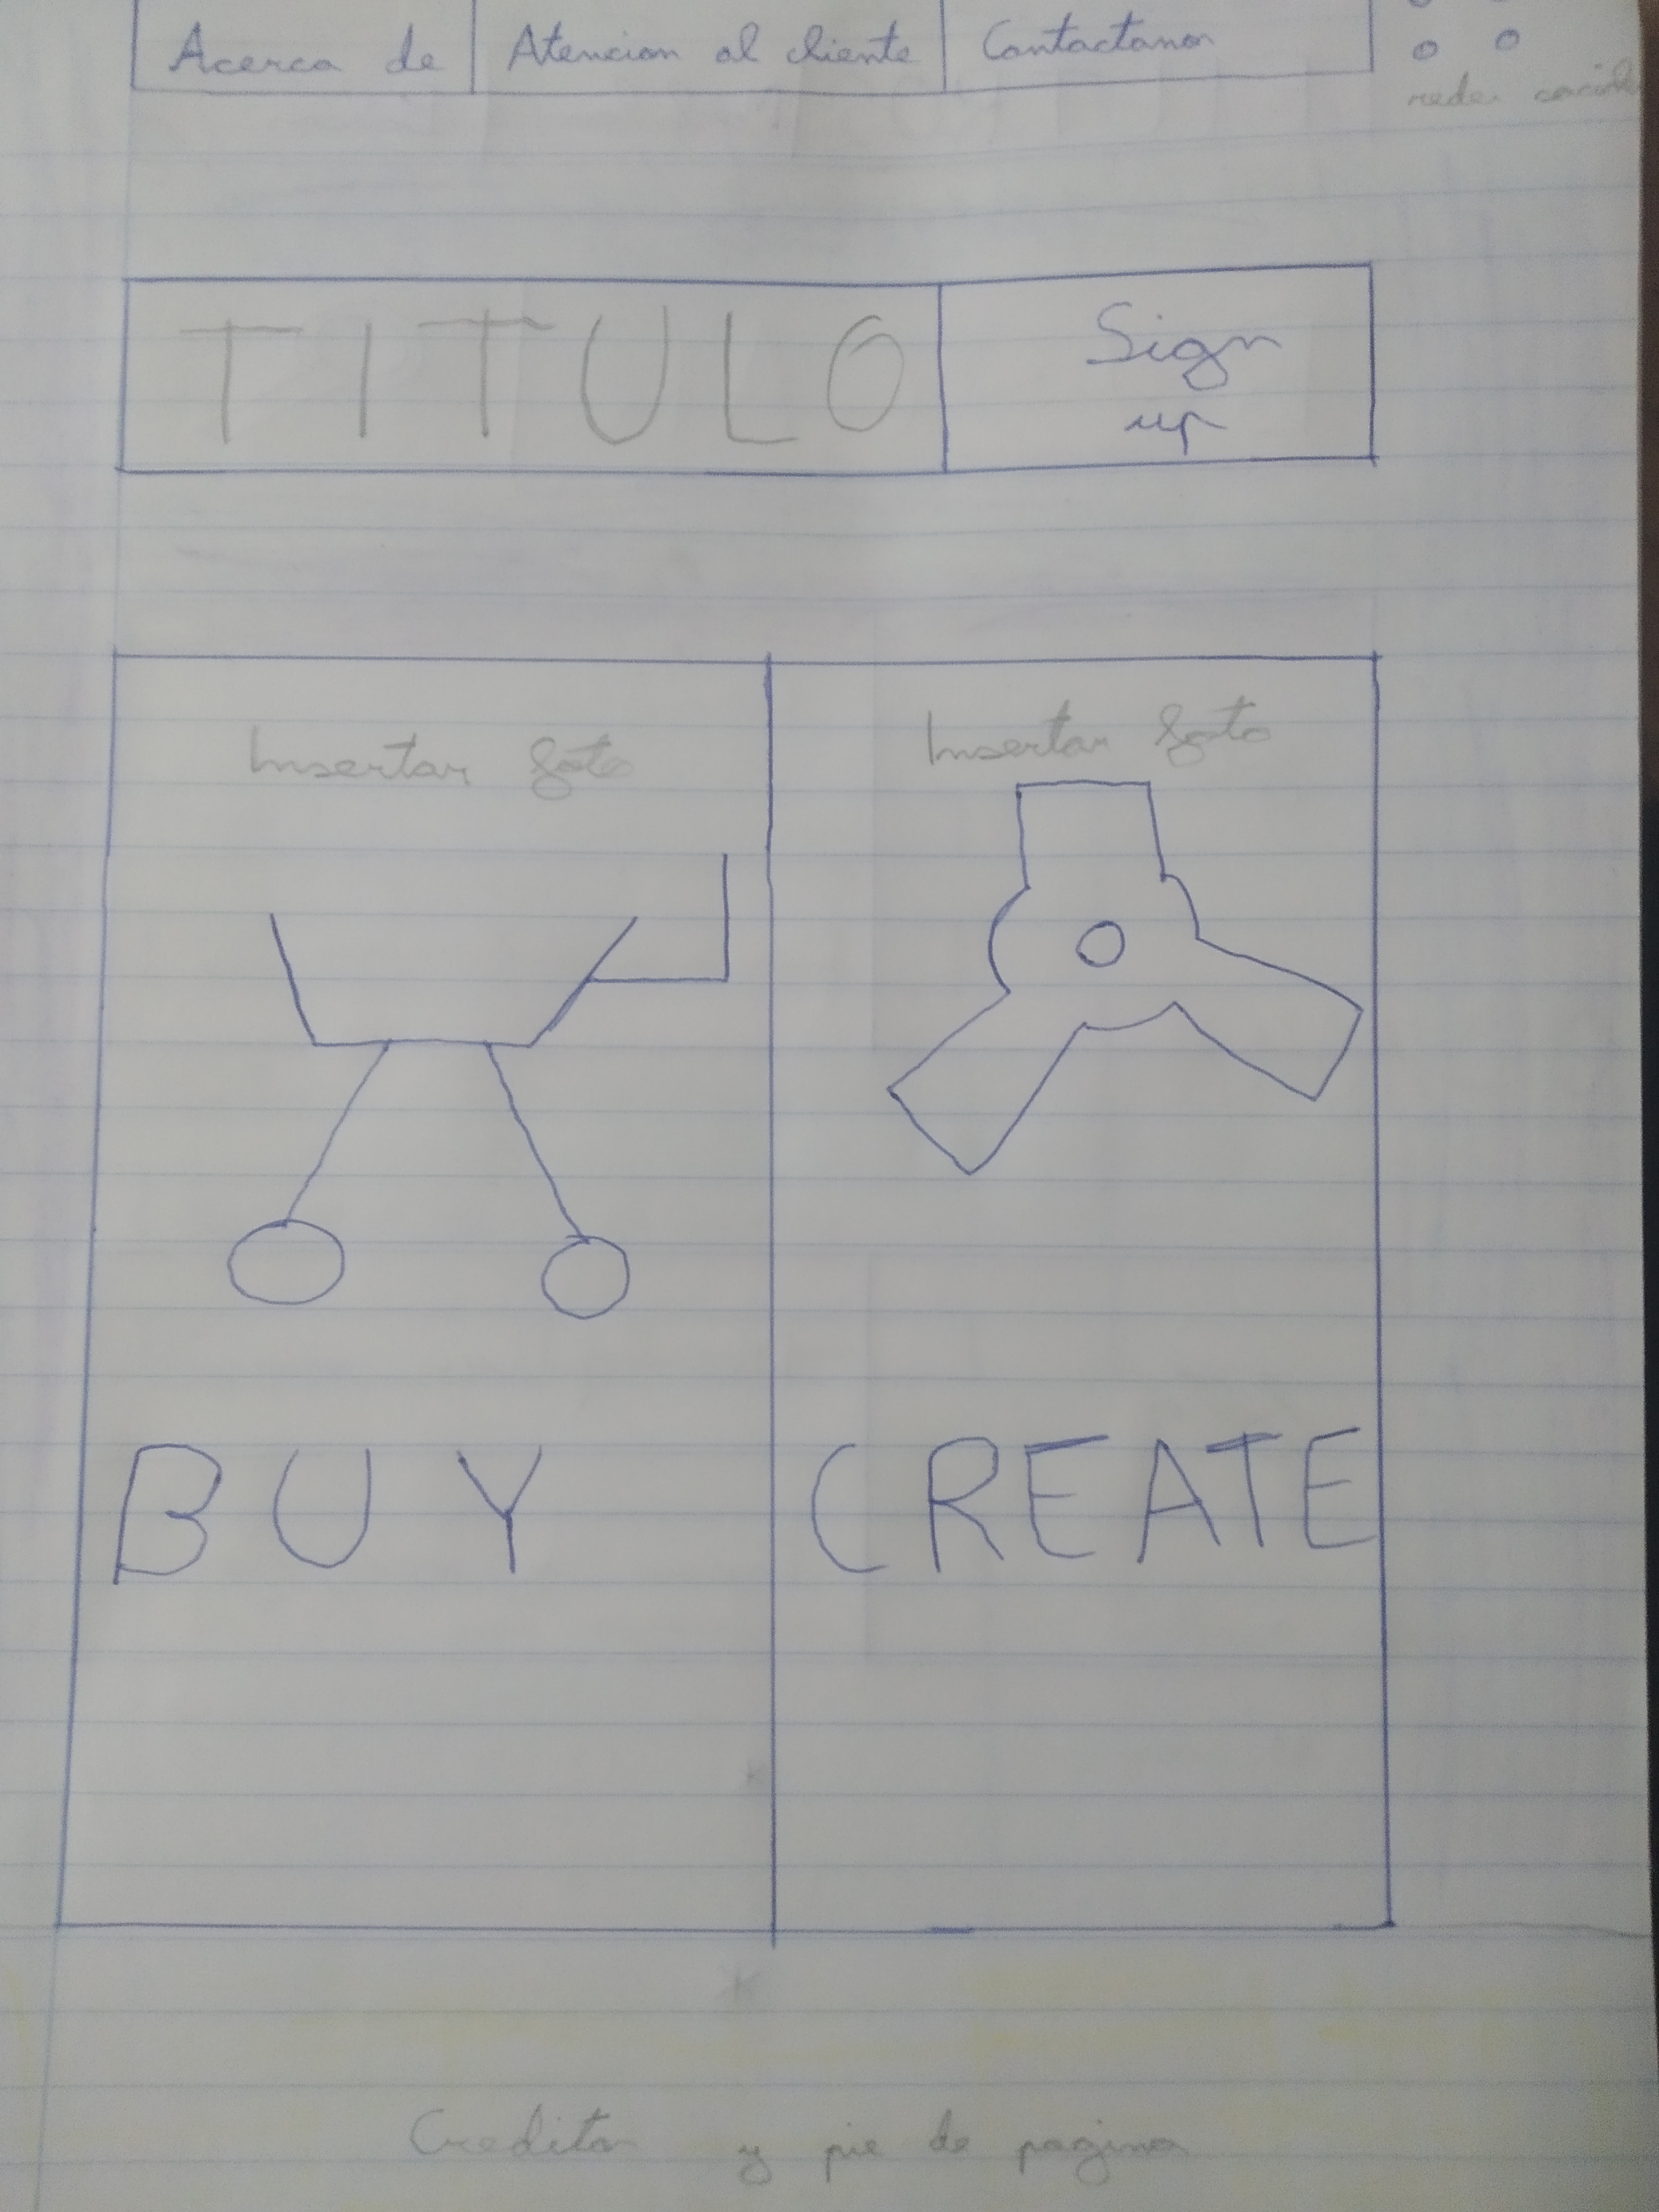 Acerca de
Atencion al cliente
Contactanos
redes sociales
TITULO
Sign
up
Insertar foto
Insertar foto
BUY
CREATE
Creditos y pie de pagina